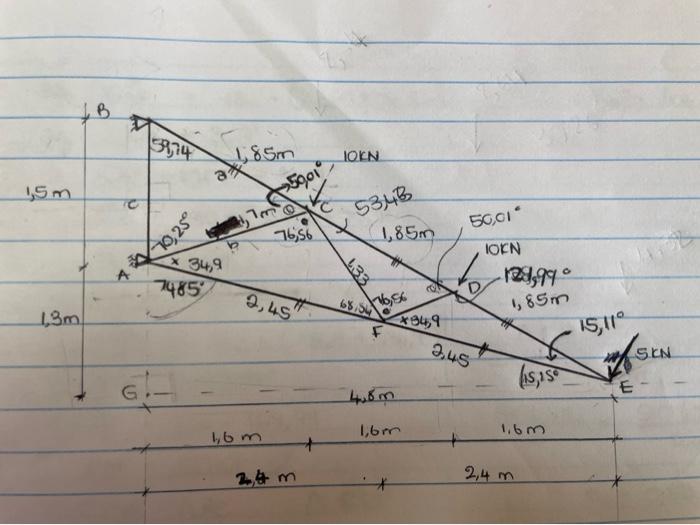 B
59,74
1,85m
a
50,01°
10KN
C
53,43
1,5m
c
70,25°
1,7m
b
76,56
1,85m
50,01°
10KN
A
x 34,9
1,33
D
7485°
2,45
68,54
76,56
1,85m
15,11°
1,3m
F
x34,9
2,45
15,15°
5KN
E
G
4,8m
1,6m
1,6m
1,6m
m
2,4 m